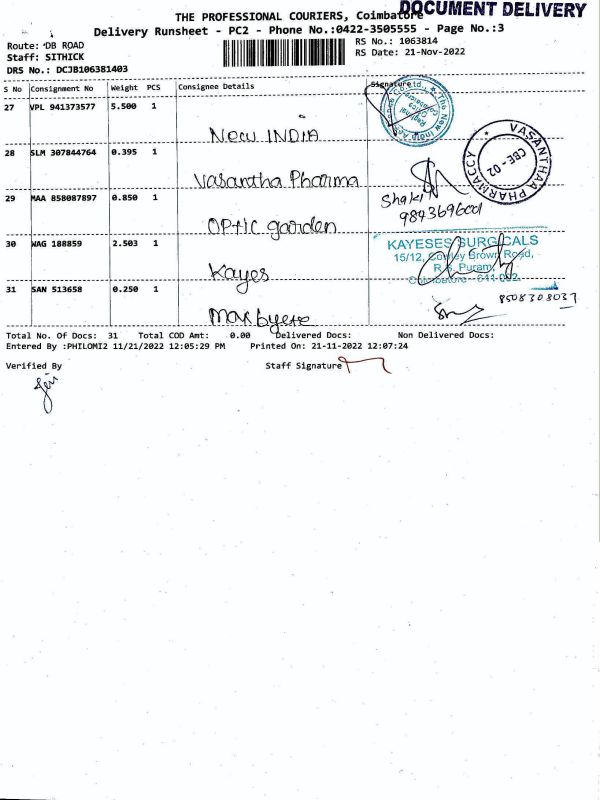 THE PROFESSIONAL COURIERS, Coimbatore
DOCUMENT DELIVERY
Delivery Runsheet - PC2 - Phone No.:0422-3505555 - Page No.:3
Route: DB ROAD
RS No.: 1063814
Staff: SITHICK
RS Date: 21-Nov-2022
DRS No.: DCJB106381403
S No Consignment No Weight PCS Consignee Details Signature
27 VPL 941373577 5.500 1
New INDIA
28 SLM 307844764 0.395 1
Vasantha Pharma
VASANTHAA PHARMACCY
CBE-02
29 MAA 858087897 0.850 1
Optic garden
Shaki
9843696001
30 WAG 188859 2.503 1
Kayes
KAYESES SURGICALS
15/12, Cowley Brown Road,
R.S. Puram,
Coimbatore - 641 002.
31 SAN 513658 0.250 1
8508308037
Total No. Of Docs: 31 Total COD Amt: 0.00 Delivered Docs: Non Delivered Docs:
Entered By :PHILOMI2 11/21/2022 12:05:29 PM Printed On: 21-11-2022 12:07:24
Verified By Staff Signature